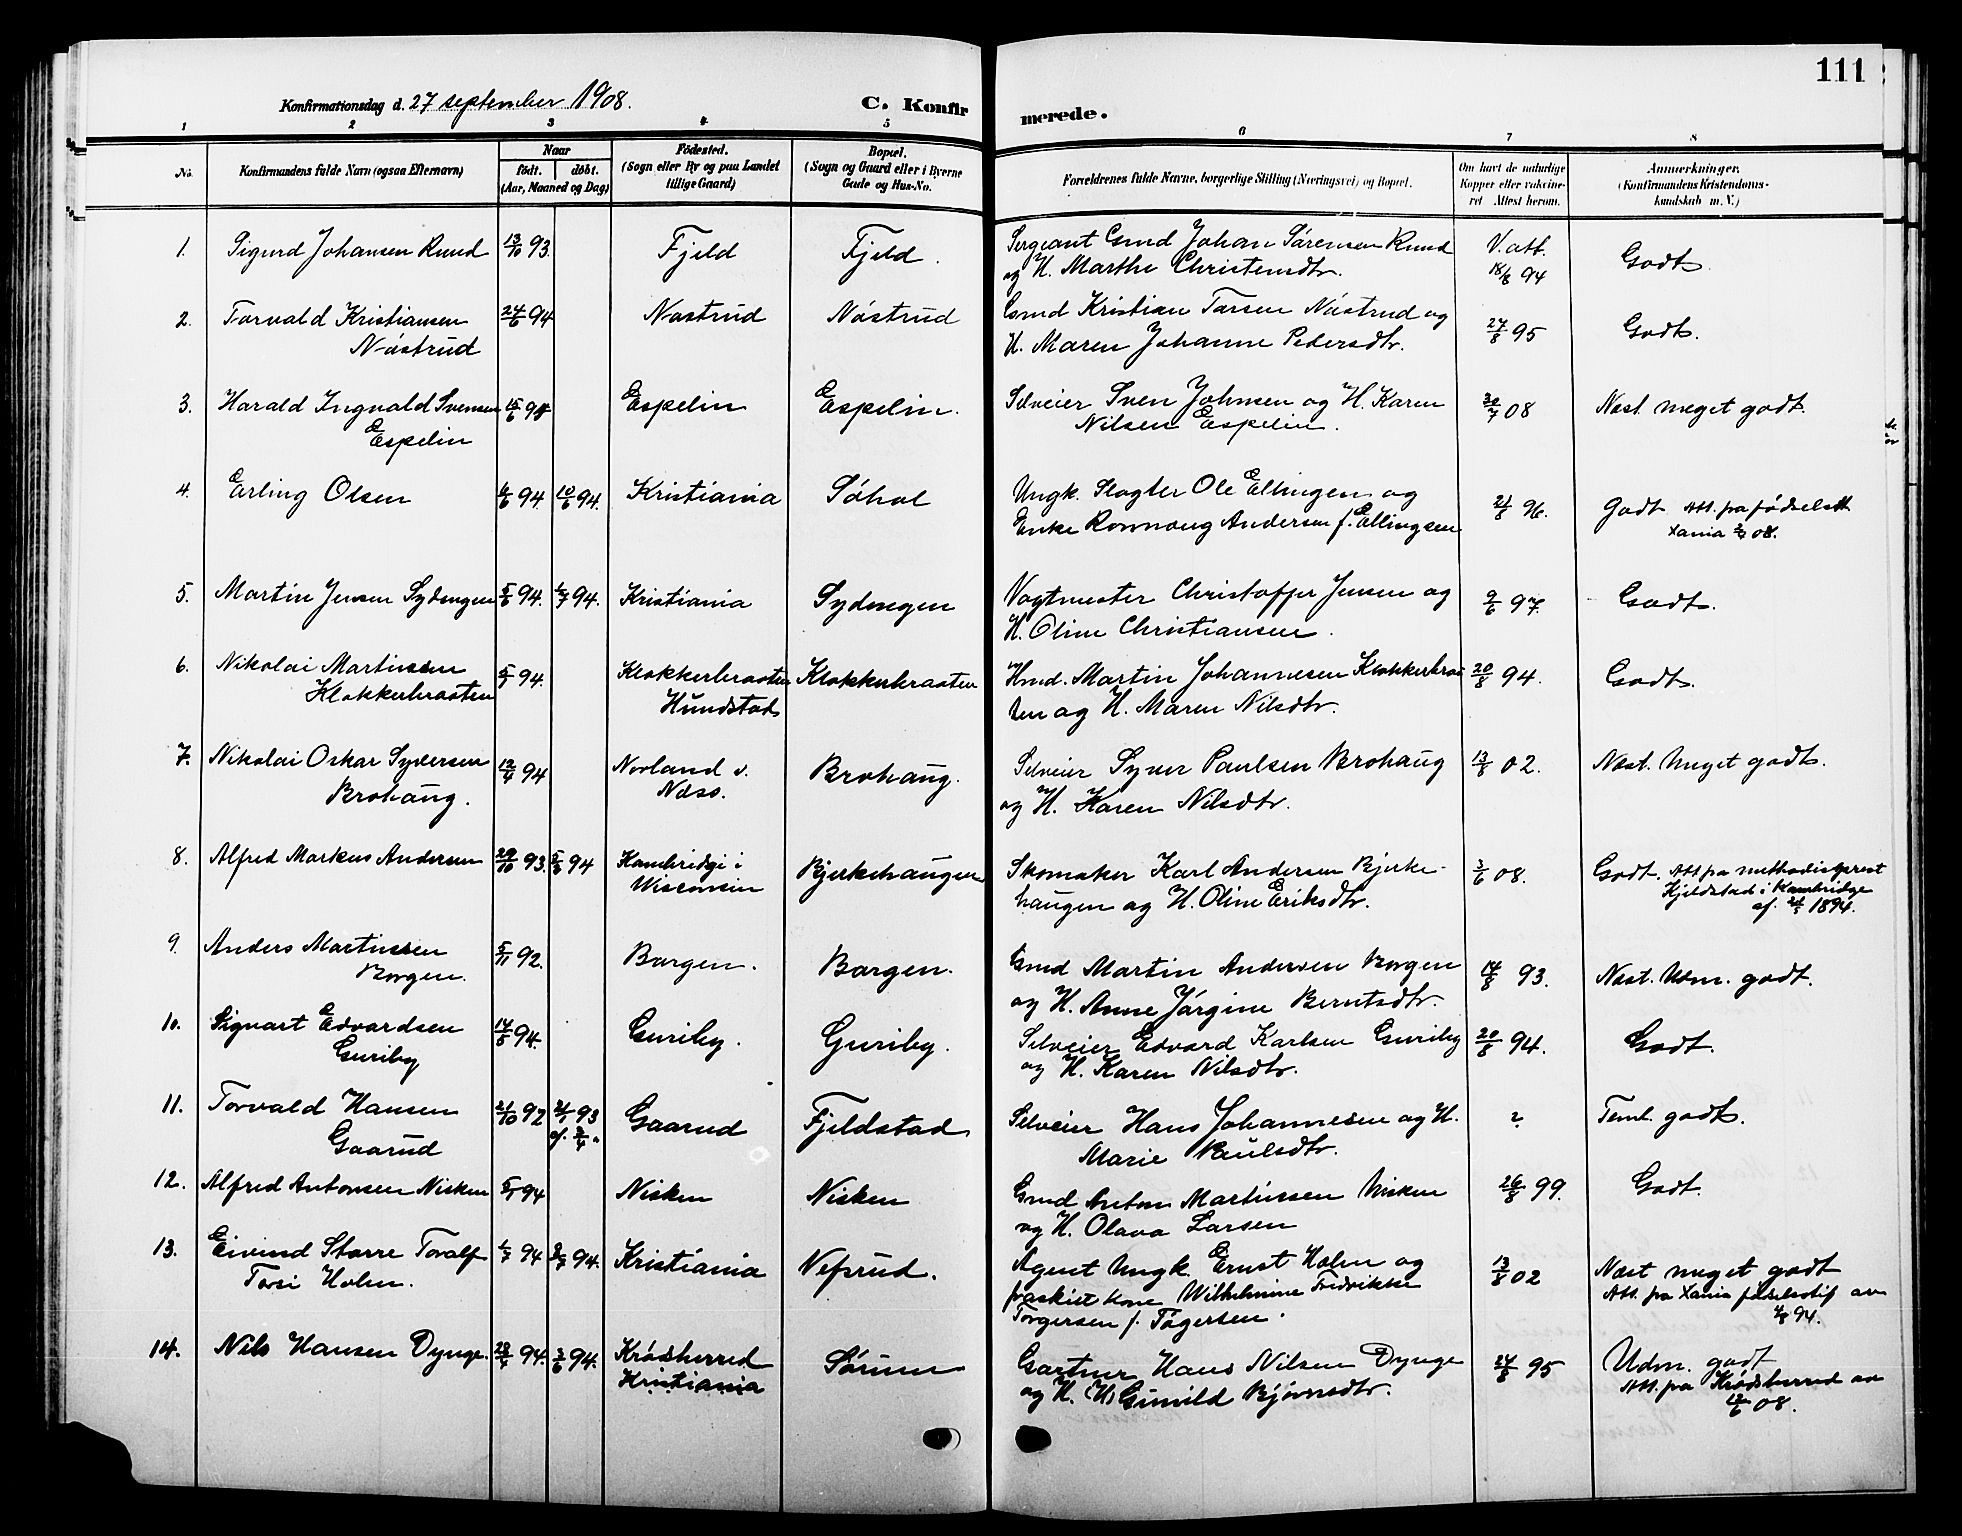 111
Konfirmationsdag d. 27 september 1908.
C. Konfirmerede.
1 2 3 4 5 6 7 8
No.
Konfirmandens fulde Navn (ogsaa Efternavn)
Naar
födt. döbt.
(Aar, Maaned og Dag)
Födested.
(Sogn eller By og paa Landet
tillige Gaard)
Bopæl.
(Sogn og Gaard eller i Byerne
Gade og Hus-No.
Forældrenes fulde Navne, borgerlige Stilling (Næringsvei) og Bopæl.
Om havt de naturlige
Kopper eller vakcine-
ret Attest herom.
Anmærkninger.
(Konfirmandens Kristendoms-
kundskab m. V.)
1. Sigurd Johansen Ruud 13/10 93. Fjeld Fjeld. Sergeant Gmd Johan Sørensen Ruud V. att. Godt.
og H. Marthe Christensdtr. 18/8 94
2. Torvald Kristiansen 24/6 94 Nøstrud Nøstrud Gmd Kristian Larsen Nøstrud og 27/8 95 Godt.
Nøstrud H. Maren Johanne Pedersdtr.
3. Harald Ingvald Svensen 15/6 94 Espelin Espelin. Selveier Sven Johnsen og H. Karen 30/7 08 Næst. meget godt.
Espelin Nilsen Espelin.
4. Erling Olsen 6/6 94 10/6 94. Kristiania Søhol Ungk. Slagter Ole Ellingsen og 21/8 96. Godt Att. fra fødselsst
Enke Rønnoug Andersen f. Ellingsen Xania 08.
5. Martin Jensen Sydengen 5/6 94. 1/7 94. Kristiania Sydengen Vagtmester Christoffer Jensen og 9/6 97. Godt.
H. Oline Christiansen.
6. Nikolai Martinsen 5/7 94. Klokkerbraaten Klokkerbraaten Hmd. Martin Johannesen Klokkerbraa 20/8 94. Godt.
Klokkerbraaten Hundstad ten og H. Maren Nilsdtr.
7. Nikolai Oskar Syversen 12/4 94 Norland v. Brohaug. Selveier Syver Paulsen Brohaug 13/8 02. Næst. meget godt.
Brohaug. Næss. og H. Karen Nilsdtr.
8. Alfred Markus Andersen 29/10 93. 94 Kambridge i Bjerkehaugen Skomaker Karl Andersen Bjerke- 3/6 08. Godt. Att fra methodistprest
Wisconsin haugen og H. Oline Eriksdtr. Kjeldstad i Kambridge
af. 1894.
9. Anders Martinsen 5/11 92. Borgen. Borgen. Gmd Martin Andersen Borgen 14/8 93. Næst. Udm. godt.
Borgen. og H. Anne Jørgine Berntsdtr.
10. Sigvart Edvardsen 14/5 94. Guriby. Guriby. Selveier Edvard Karlsen Guriby 20/8 94. Godt.
Guriby og H. Karen Nilsdtr.
11. Torvald Hansen 21/10 92 2/1 93 Gaarud Fjeldstad Selveier Hans Johannesen og H. ? Teml. godt.
Gaarud Marie Paulsdtr.
12. Alfred Antonsen Nisken 5/1 94 Nisken Nisken Gmd Anton Martinsen Nisken 26/8 99. Godt.
og H. Olava Larsen
13. Eivind Storre Toralf 1/7 94 94. Kristiania Nefsrud. Agent Ungk. Ernst Holm og 13/8 02 Næst meget godt
Torsi Holm. fraskilt kone Wilhelmine Fredrikke Att. fra Xania fødselsstif av
Torgersen f. Tøgersen. 94.
14. Nils Hansen Dynge. 28/4 94. 3/6 94. Krødsherred Sørum Gartner Hans Nilsen Dynge 24/8 95 Udm. godt
Kristiania og H. (H) Gunild Bjørnsdtr. Att. fra Krødsherred av
08.